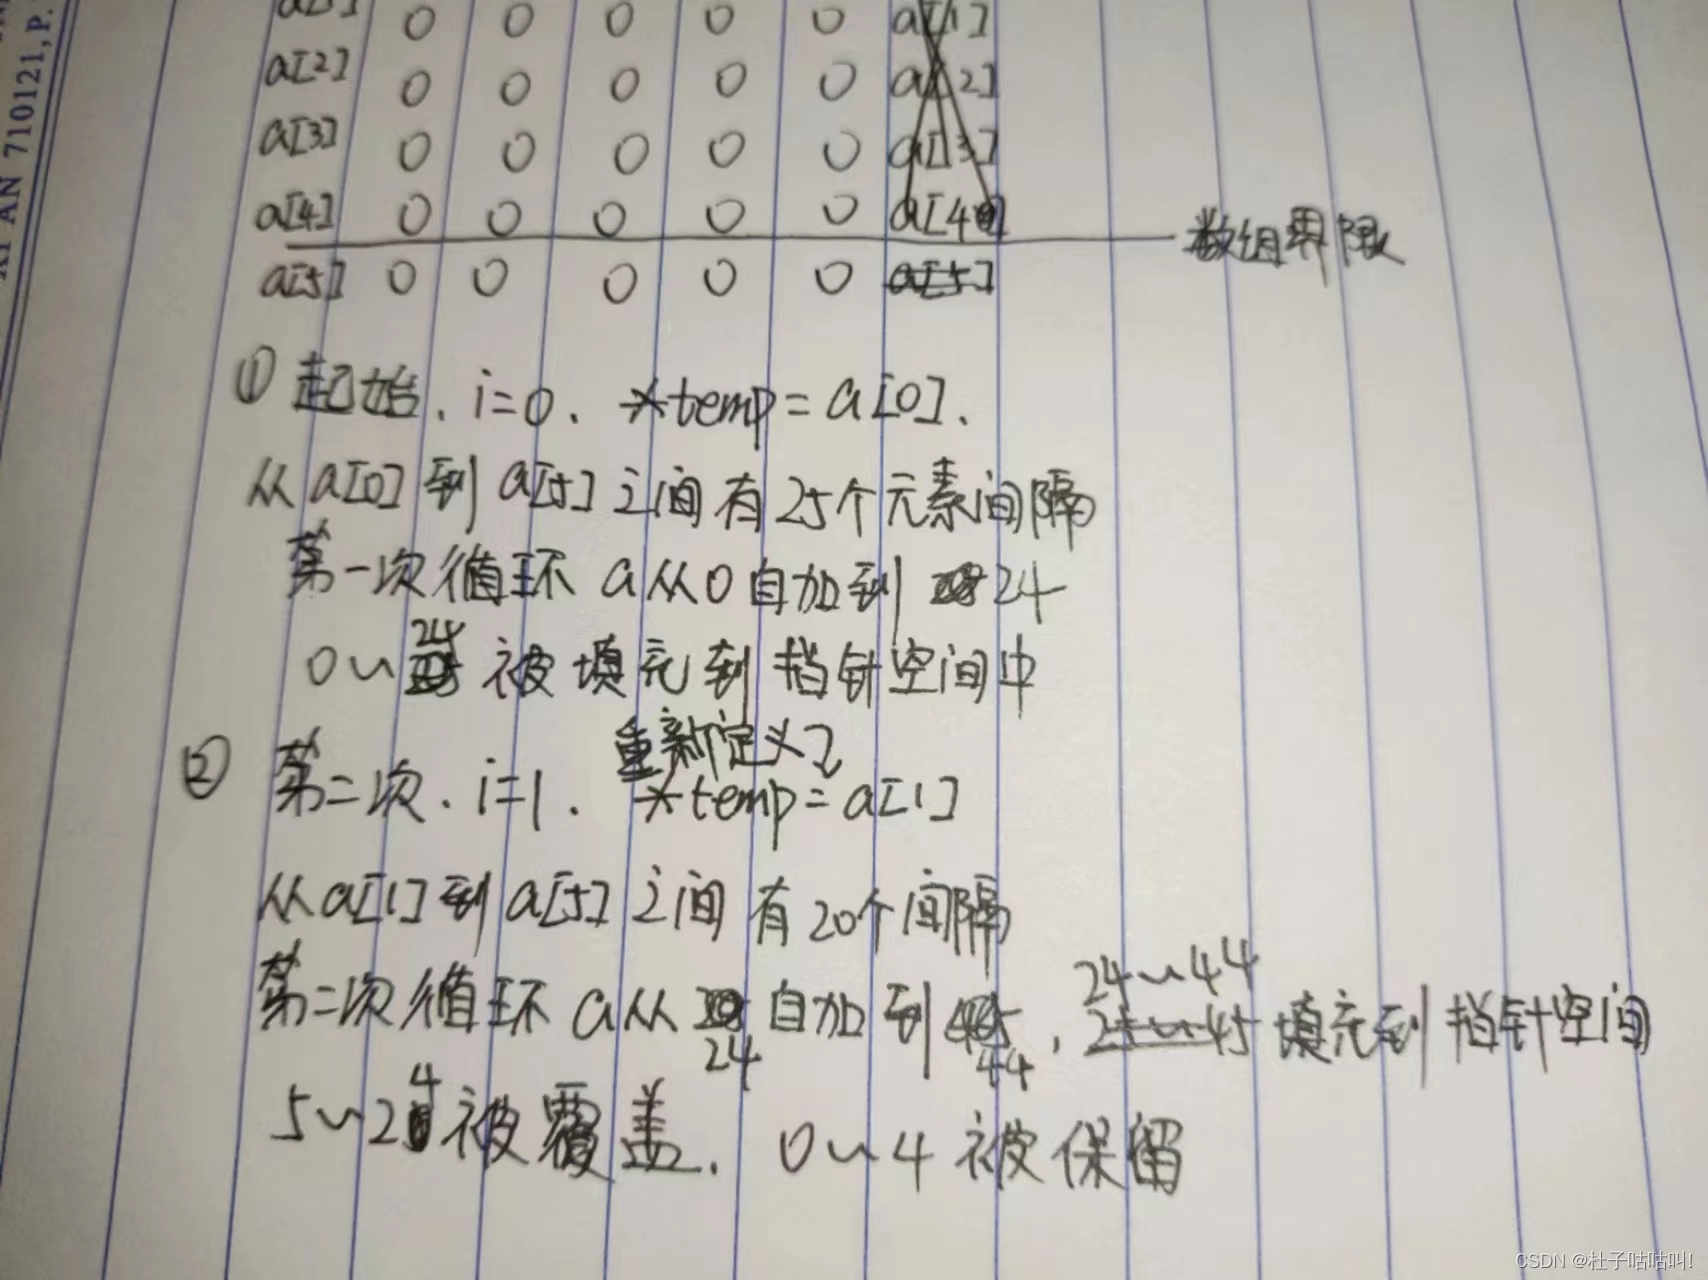 0 0 0 0 0 a[1]
a[2] 0 0 0 0 0 a[2]
a[3] 0 0 0 0 0 a[3]
a[4] 0 0 0 0 0 a[4] 数组界限
a[5] 0 0 0 0 0 a[5]
① 起始、i=0、*temp=a[0]、
从a[0]到a[5]之间有25个元素间隔
第一次循环 a从0自加到 24
0~24 被填充到指针空间中
重新定义了
② 第二次、i=1、*temp=a[1]
从a[1]到a[5]之间有20个间隔
24~44
第二次循环 a从24自加到44、25~45填充到指针空间
5~24被覆盖、0~4被保留
AN 710121, P.
CSDN @杜子咕咕叫!